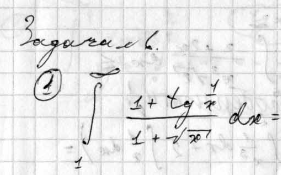 Задача №6.
① ∫₁^∞ (1 + tg 1/x) / (1 + √x) dx =